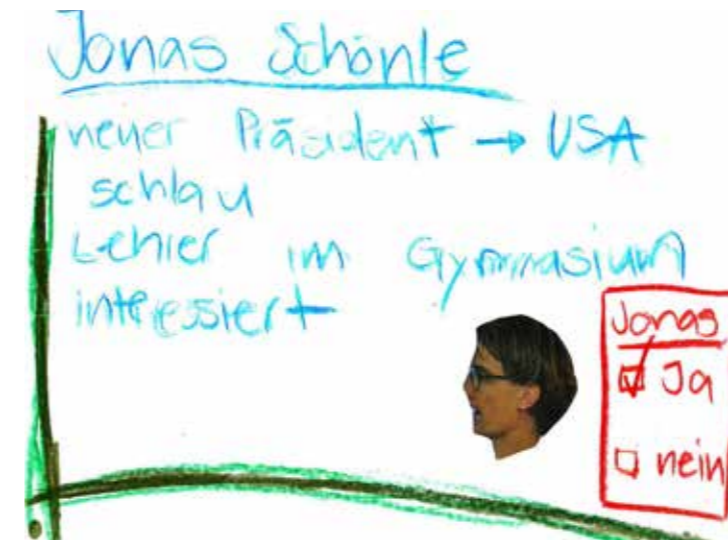 Jonas Schönle
neuer Präsident → USA
schlau
Lehrer im Gymnasium
interessiert
Jonas
Ja
nein